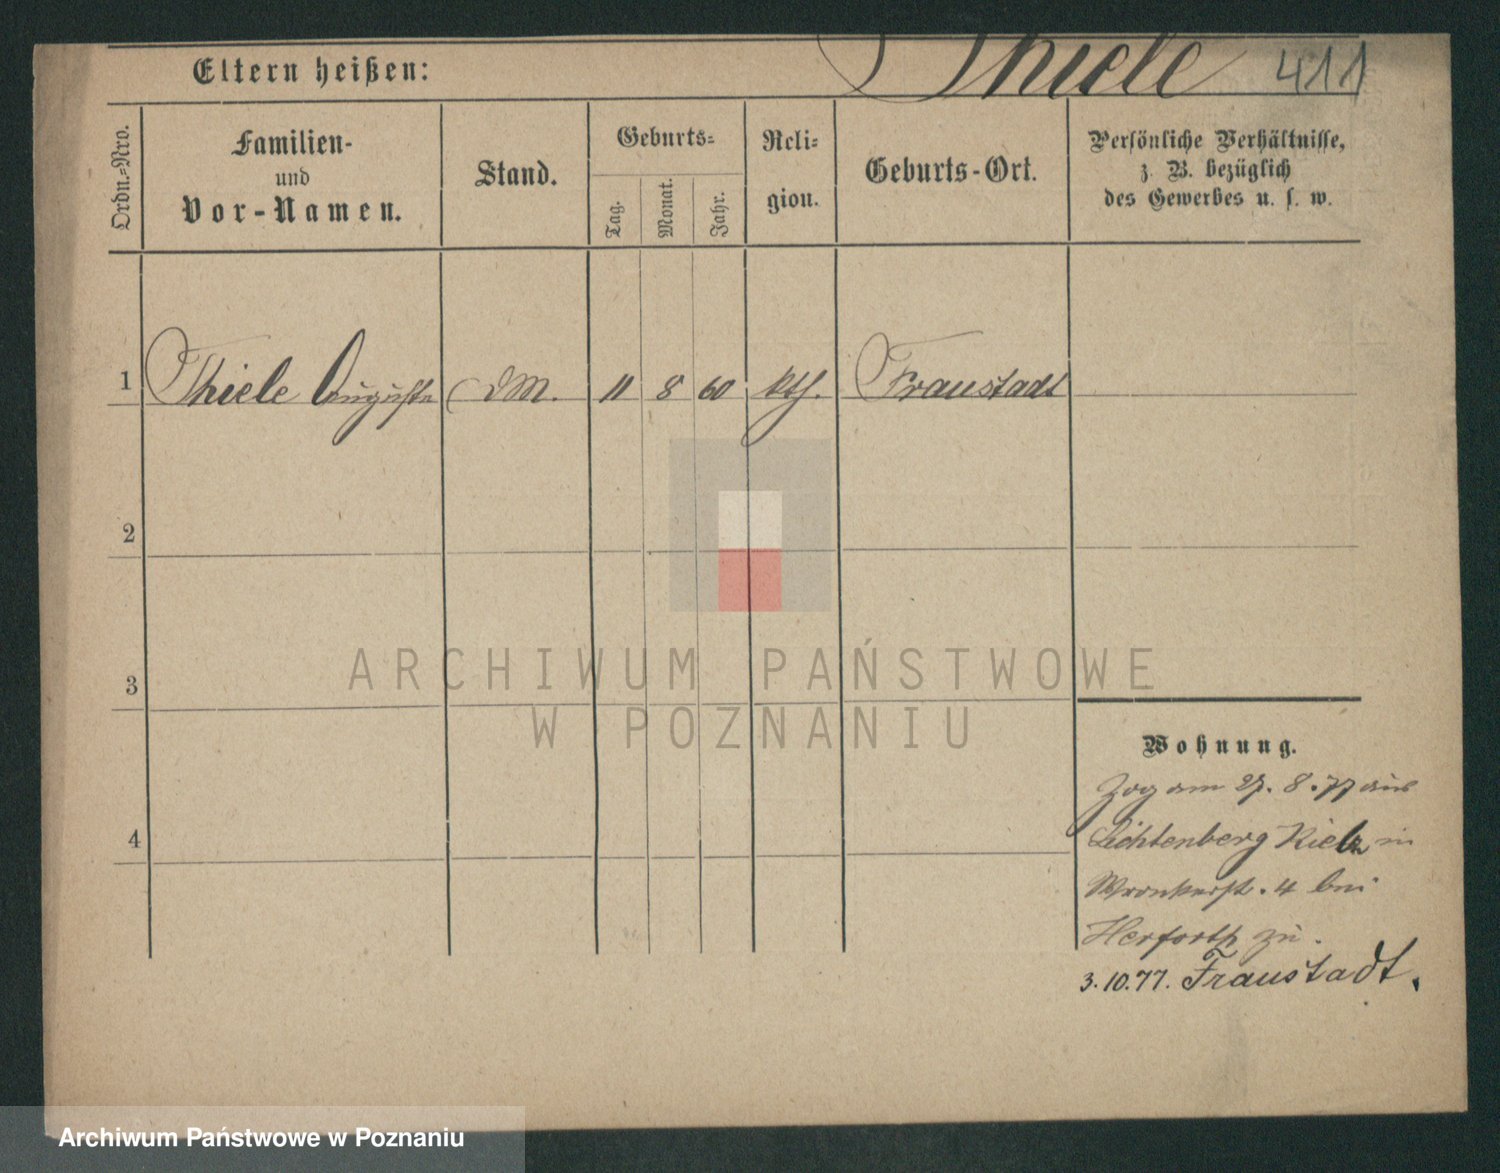 Thiele 411
Eltern heißen:
Ordn.-Nro.
Familien-
und
Vor-Namen.
Stand.
Geburts-
Tag.
Monat.
Jahr.
Reli-
gion.
Geburts-Ort.
Persönliche Verhältnisse,
z. B. bezüglich
des Gewerbes u. s. w.
1 Thiele Auguste DM. 11 8 60 kth. Fraustadt
2
3
4
Wohnung.
Zog am 27. 8. 77 aus
Lichtenberg in
Wronkerstr. 4 bei
Herforth zu.
3.10.77. Fraustadt.
ARCHIWUM PAŃSTWOWE
W POZNANIU
Archiwum Państwowe w Poznaniu